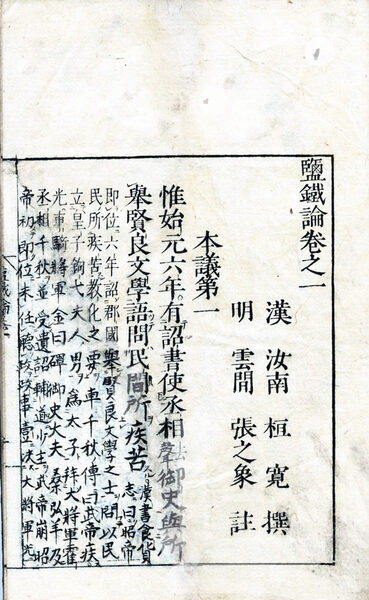 鹽鐵論卷之一
漢 汝南 桓寬 撰
明 雲間 張之象 註
本議第一
惟始元六年有詔書使丞相御史與所
擧賢良文學語問民間所疾苦
漢書食貨
志曰昭帝
即位六年詔郡國擧賢良文學之士問以民
民所疾苦教化之要車千秋傳曰武帝疾
立皇子鉤弋夫人男爲太子拜大將軍霍
光車騎將軍金日磾御史大夫桑弘羊及
丞相千秋並受遺詔輔道少主武帝崩昭
帝初即位未任聽政政事壹決大將軍光